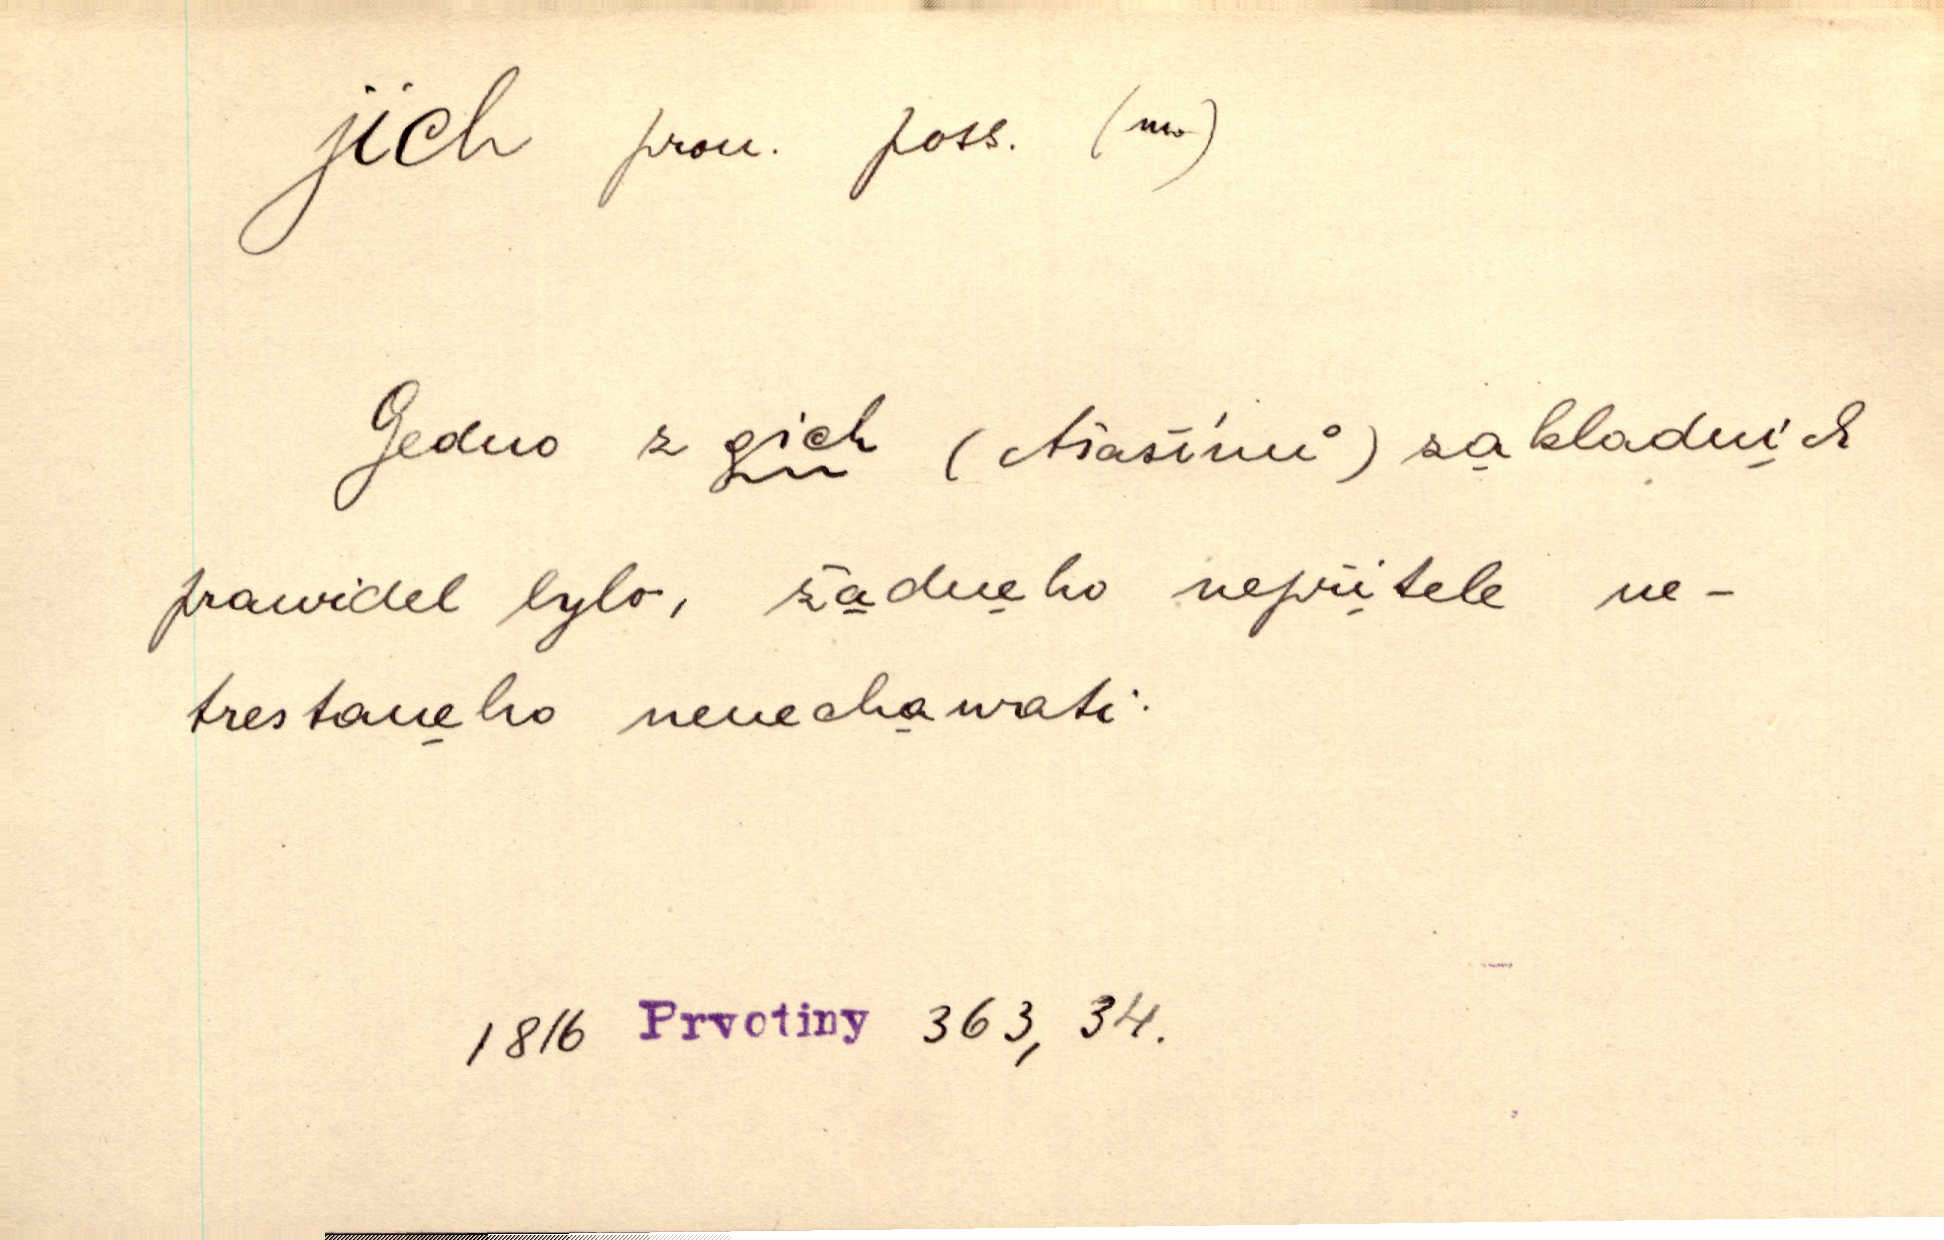 jich pron. poss. (m.)
Gedno z gich (Ašašínů) zakladnich
prawidel bylo, žadneho nepřitele ne-
trestaneho nenechawati.
1816 Prvotiny 363, 34.